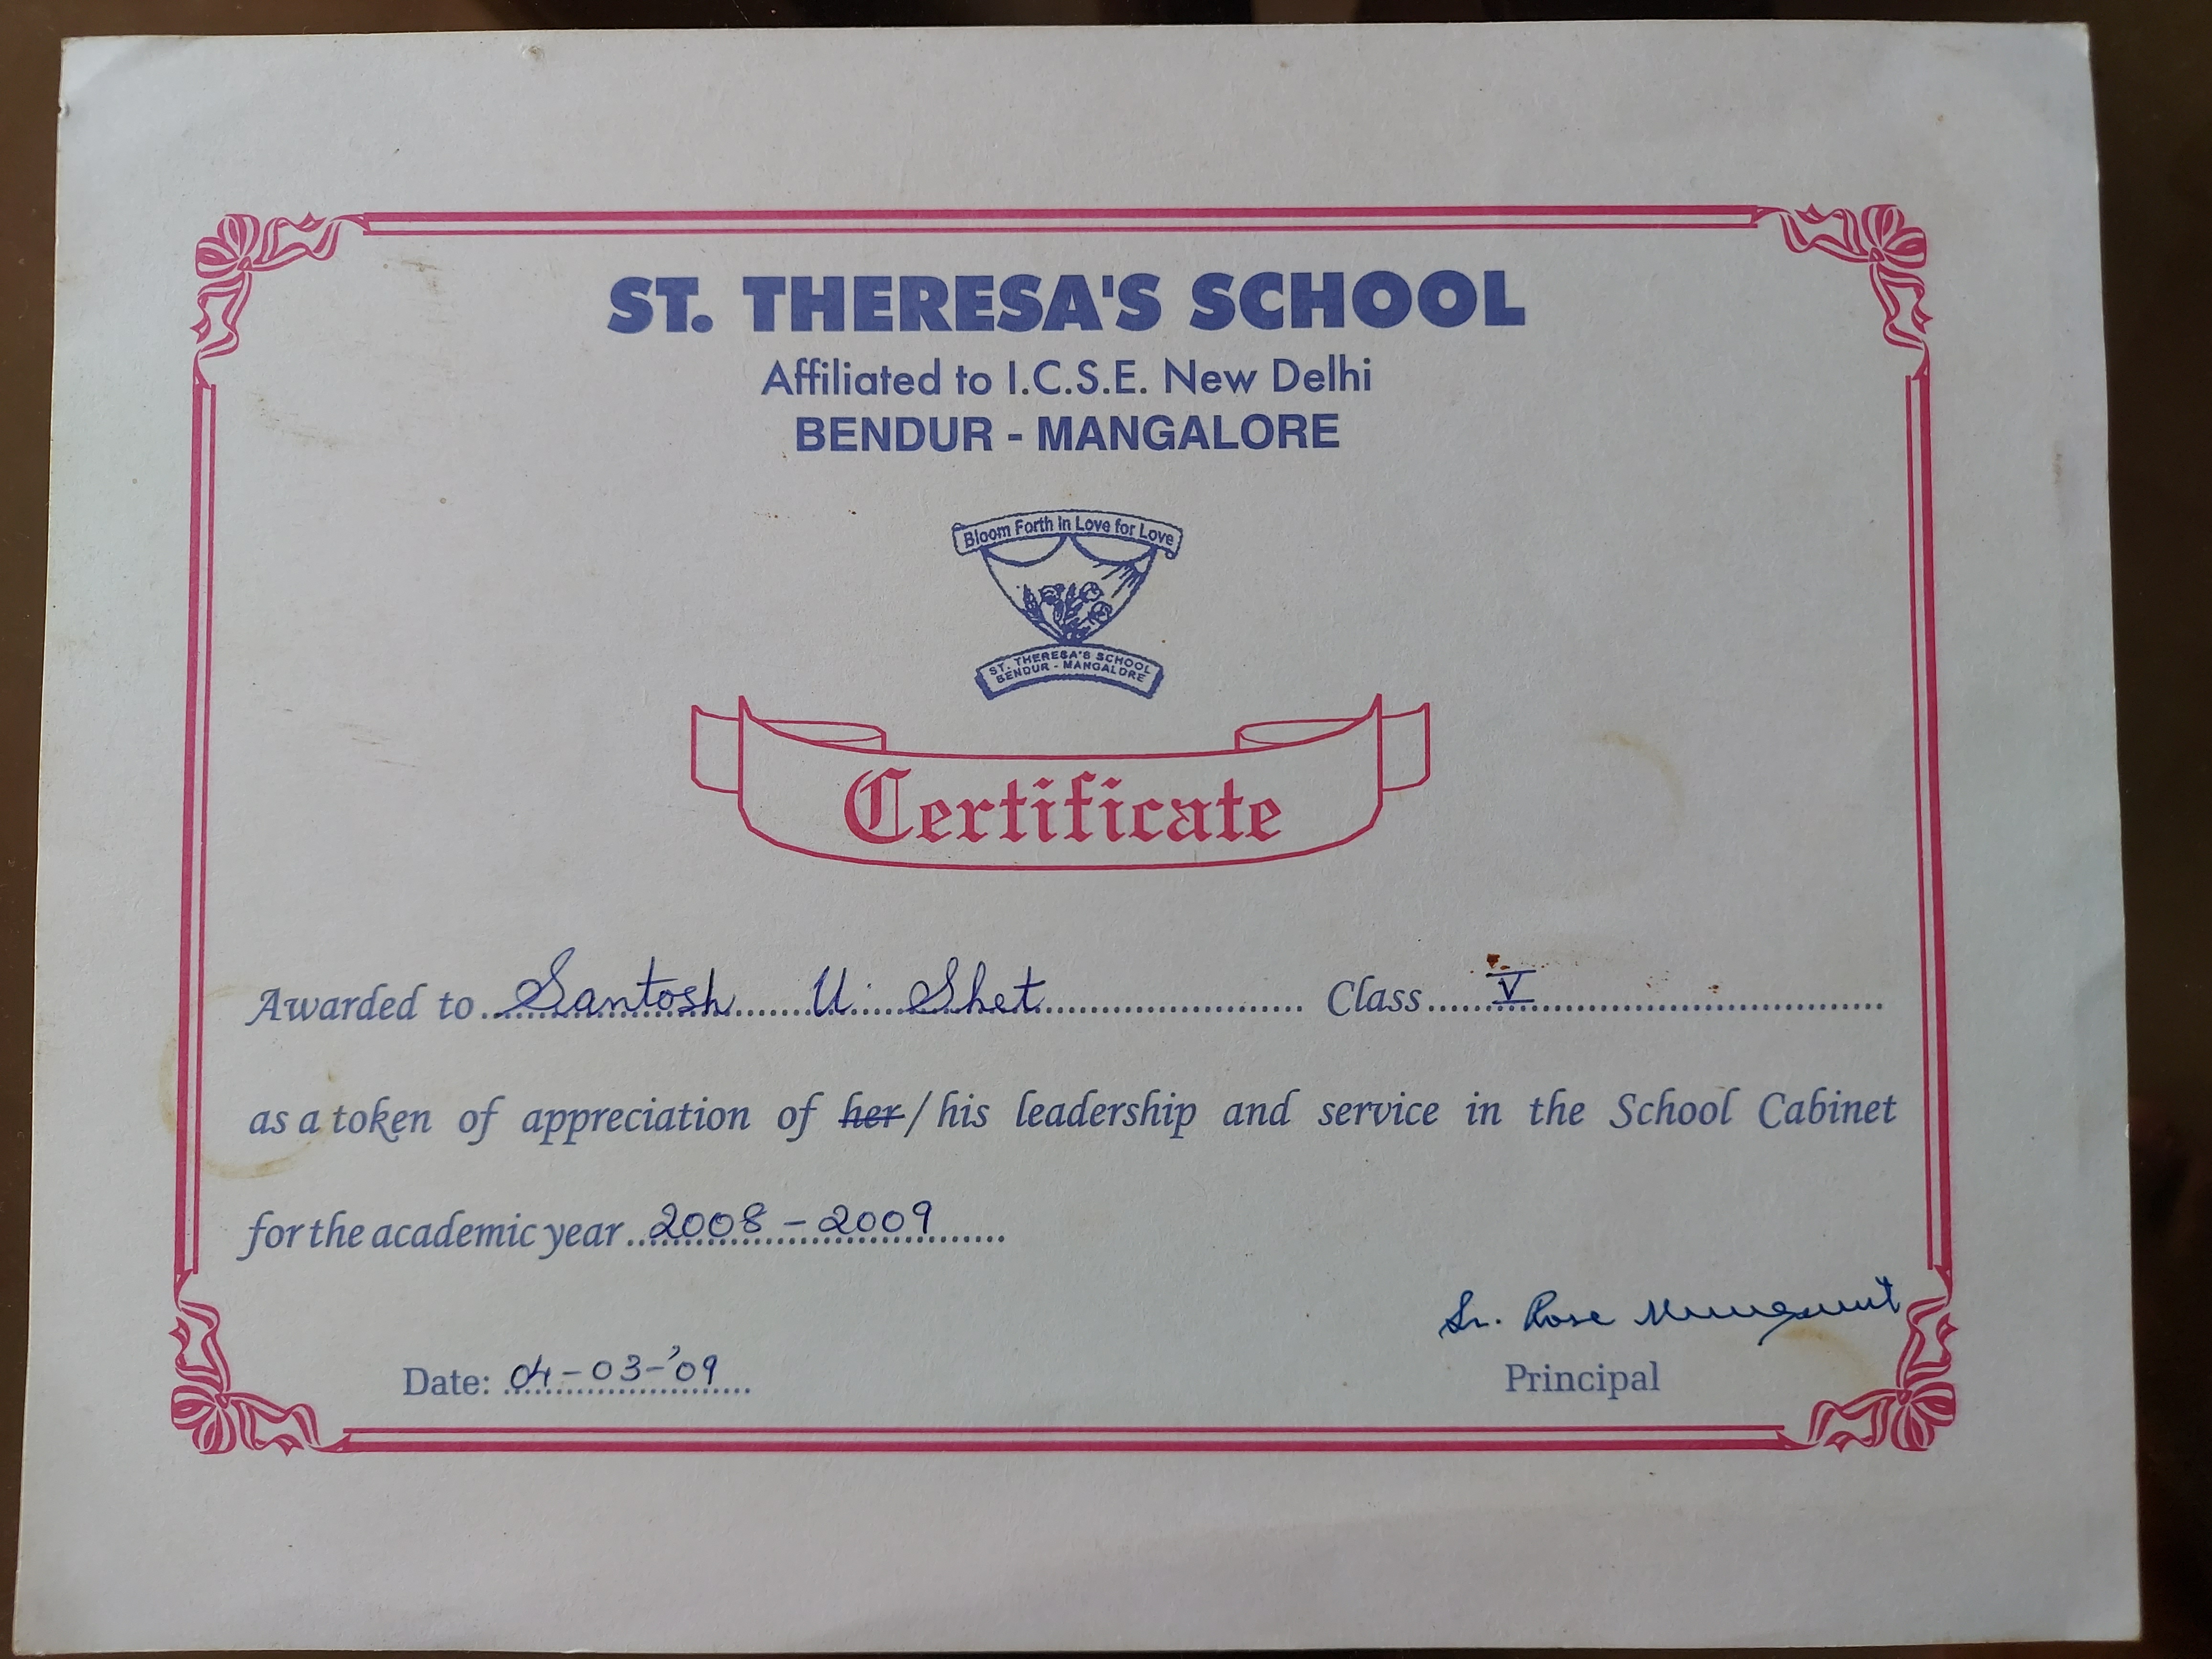 ST. THERESA'S SCHOOL
Affiliated to I.C.S.E. New Delhi
BENDUR - MANGALORE
Bloom Forth in Love for Love
ST. THERESA'S SCHOOL
BENDUR - MANGALORE
Certificate
Awarded to Santosh U. Shet Class V
as a token of appreciation of her / his leadership and service in the School Cabinet
for the academic year 2008 - 2009
Sr. Rose
Date: 04-03-'09
Principal